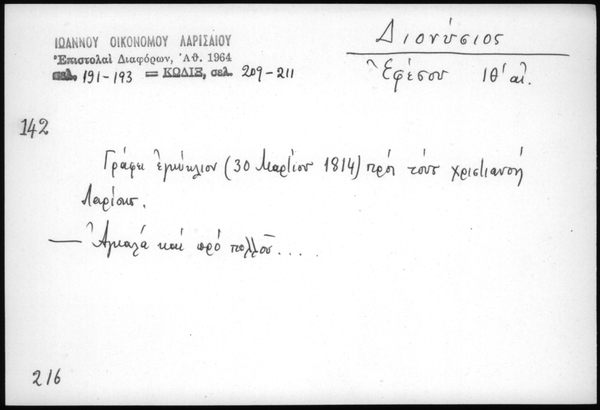 ΙΩΑΝΝΟΥ ΟΙΚΟΝΟΜΟΥ ΛΑΡΙΣΑΙΟΥ
Ἐπιστολαὶ Διαφόρων, Ἀθ. 1964
σελ. 191-193 = ΚΩΔΙΞ, σελ. 209-211
Διονύσιος
Ἐφέσου ΙΘ' αἰ.
142
Γράφει ἐγκύκλιον (30 Μαρτίου 1814) πρὸς τοὺς χριστιανοὺς
Λαρίσης.
— Ἀγκαλὰ καὶ πρὸ πολλοῦ....
216